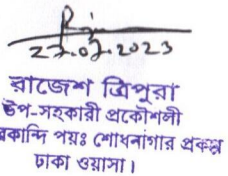 27.07.2023
রাজেশ ত্রিপুরা
উপ-সহকারী প্রকৌশলী
পয়ঃ শোধনাগার প্রকল্প
ঢাকা ওয়াসা।